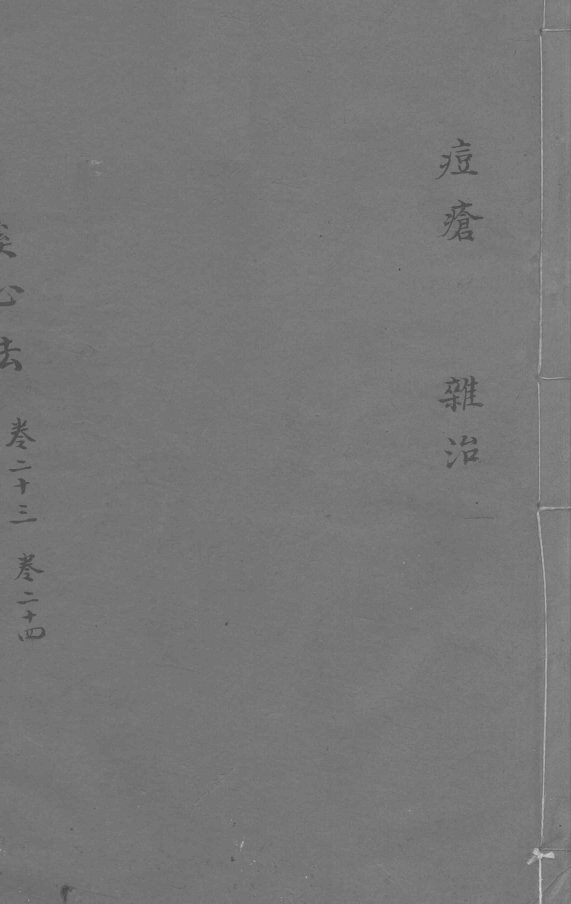 痘瘡 雜治
心法 卷二十三 卷二十四